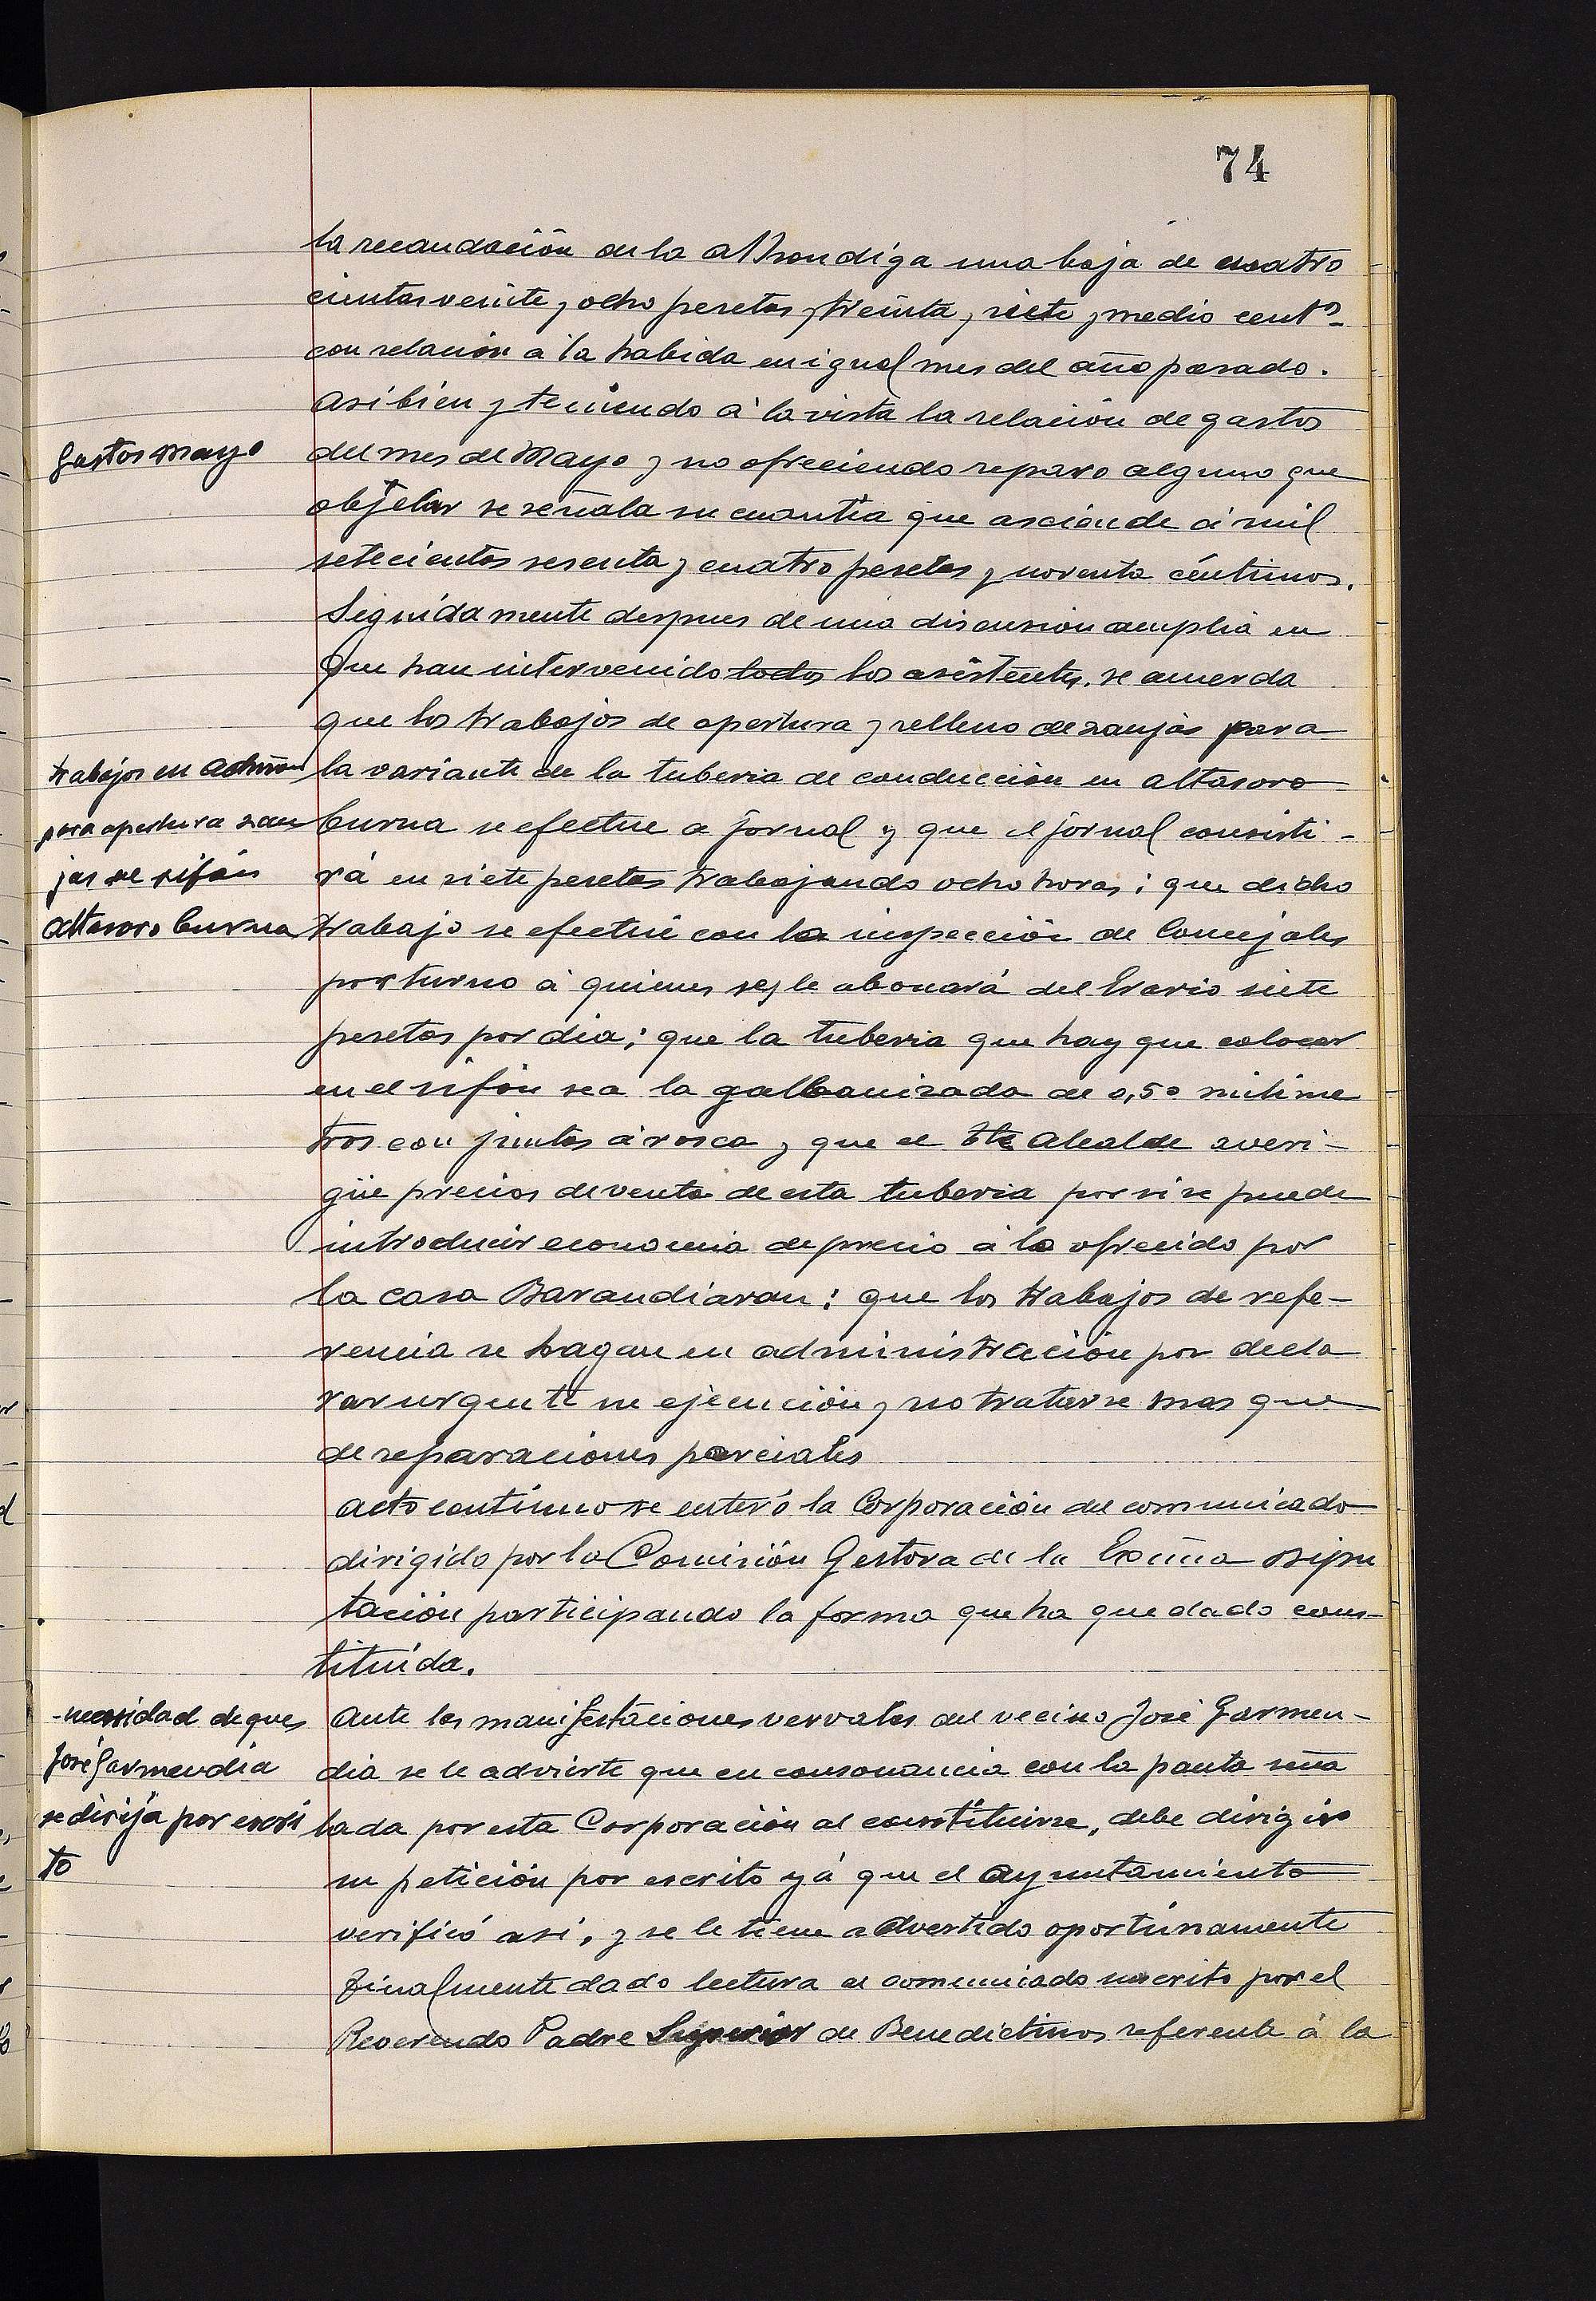 74
la recaudación de la alhondiga una baja de cuatro
cientas veinte y ocho pesetas y treinta y siete y medio cents
con relación a la habida en igual mes del año pasado.
Asi bien y teniendo á la vista la relación de gastos
Gastos Mayo
del mes de Mayo y no ofreciendo reparo alguno que
objetar se señala su cuantia que asciende á mil
setecientas sesenta y cuatro pesetas y noventa céntimos.
Seguidamente despues de una discusion amplia en
que han intervenido todos los asistentes, se acuerda
que los trabajos de apertura y relleno de zanjas para
trabajos en admon
la variante de la tuberia de conducción en altasoro
para apertura zan
burua se efectue a jornal y que el jornal consisti-
jas de sifón
rá en siete pesetas trabajando ocho horas; que dicho
Altasoro burua
trabajo se efectúe con la inspección de Concejales
por turno á quienes se le abonará del Erario siete
pesetas por dia; que la tuberia que hay que colocar
en el sifón sea la galbanizada de 0,50 milime
tros con juntas á rosca y que el Alcalde averi-
güe precios de venta de esta tuberia por si se puede
introducir economia de precio á lo ofrecido por
la casa Barandiaran: que los trabajos de refe-
rencia se hagan en administración por decla
rar urgente su ejecución y no tratarse mas que
de reparaciones parciales
Acto continuo se enteró la Corporación del comunicado
dirigido por la Comisión Gestora de la Excma Dipu
tación participando la forma que ha quedado cons-
tituída.
-necesidad de que
Ante las manifestaciones vervales del vecino José Garmen-
José Garmendia
dia se le advierte que en consonancia con la pauta seña
se dirija por escri
lada por esta Corporación al constituirse, debe dirigir
to
su petición por escrito yá que el Ayuntamiento
verificó asi, y se le tiene advertido oportúnamente
Finalmente dado lectura al comunicado suscrito por el
Reverendo Padre Superior de Benedictinos referente á la